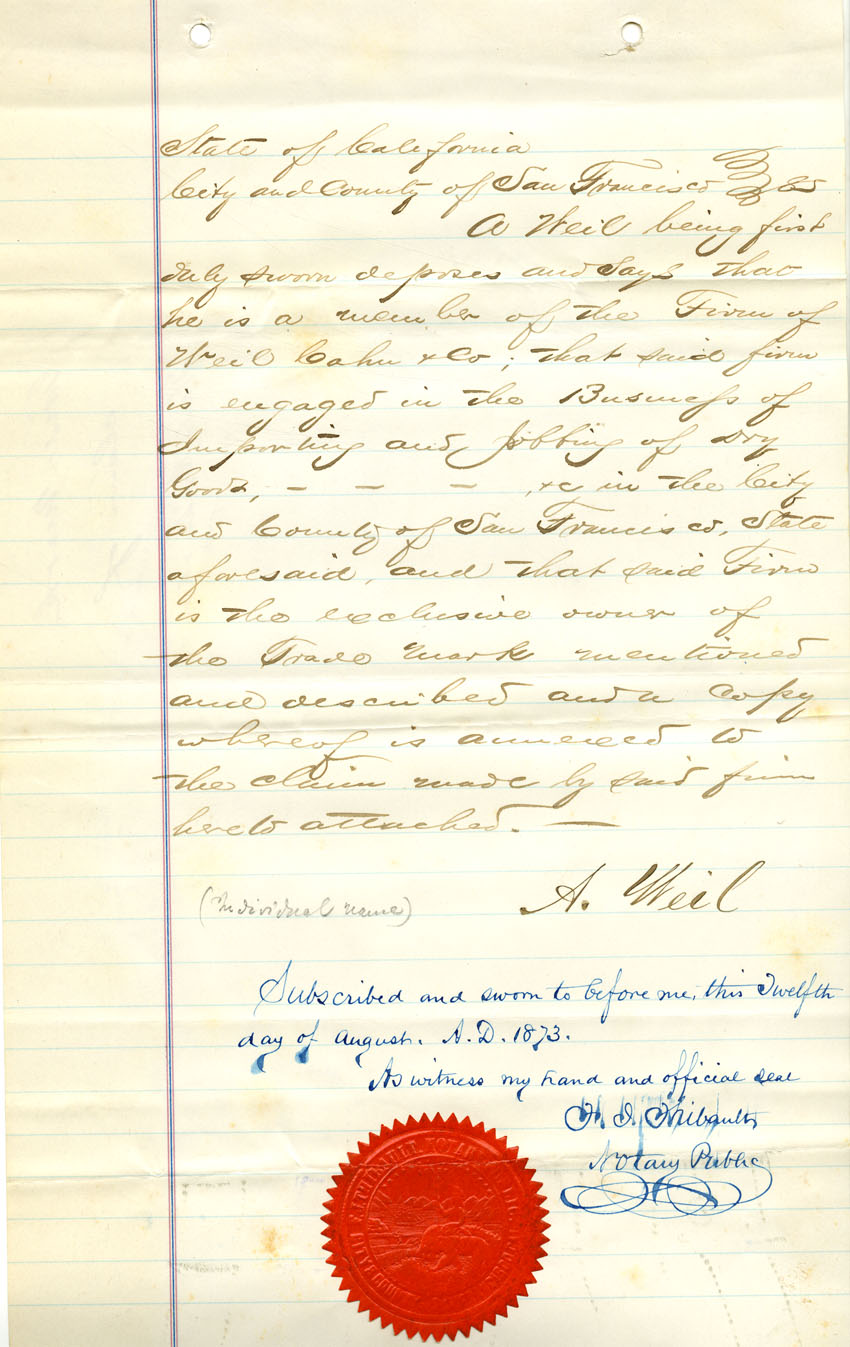 State of California
City and County of San Francisco } ss
A Weil being first
duly sworn deposes and says that
he is a member of the Firm of
Weil Cahn & Co; that said firm
is engaged in the Business of
Importing and Jobbing of Dry
Goods, — — — , &c in the City
and County of San Francisco, State
aforesaid, and that said Firm
is the exclusive owner of
the Trade Mark mentioned
and described and a Copy
whereof is annexed to
the claim made by said firm
hereto attached. —
A. Weil
(Individual name)
Subscribed and sworn to before me, this Twelfth
day of August. A.D. 1873.
As witness my hand and official seal
Thibault
Notary Public